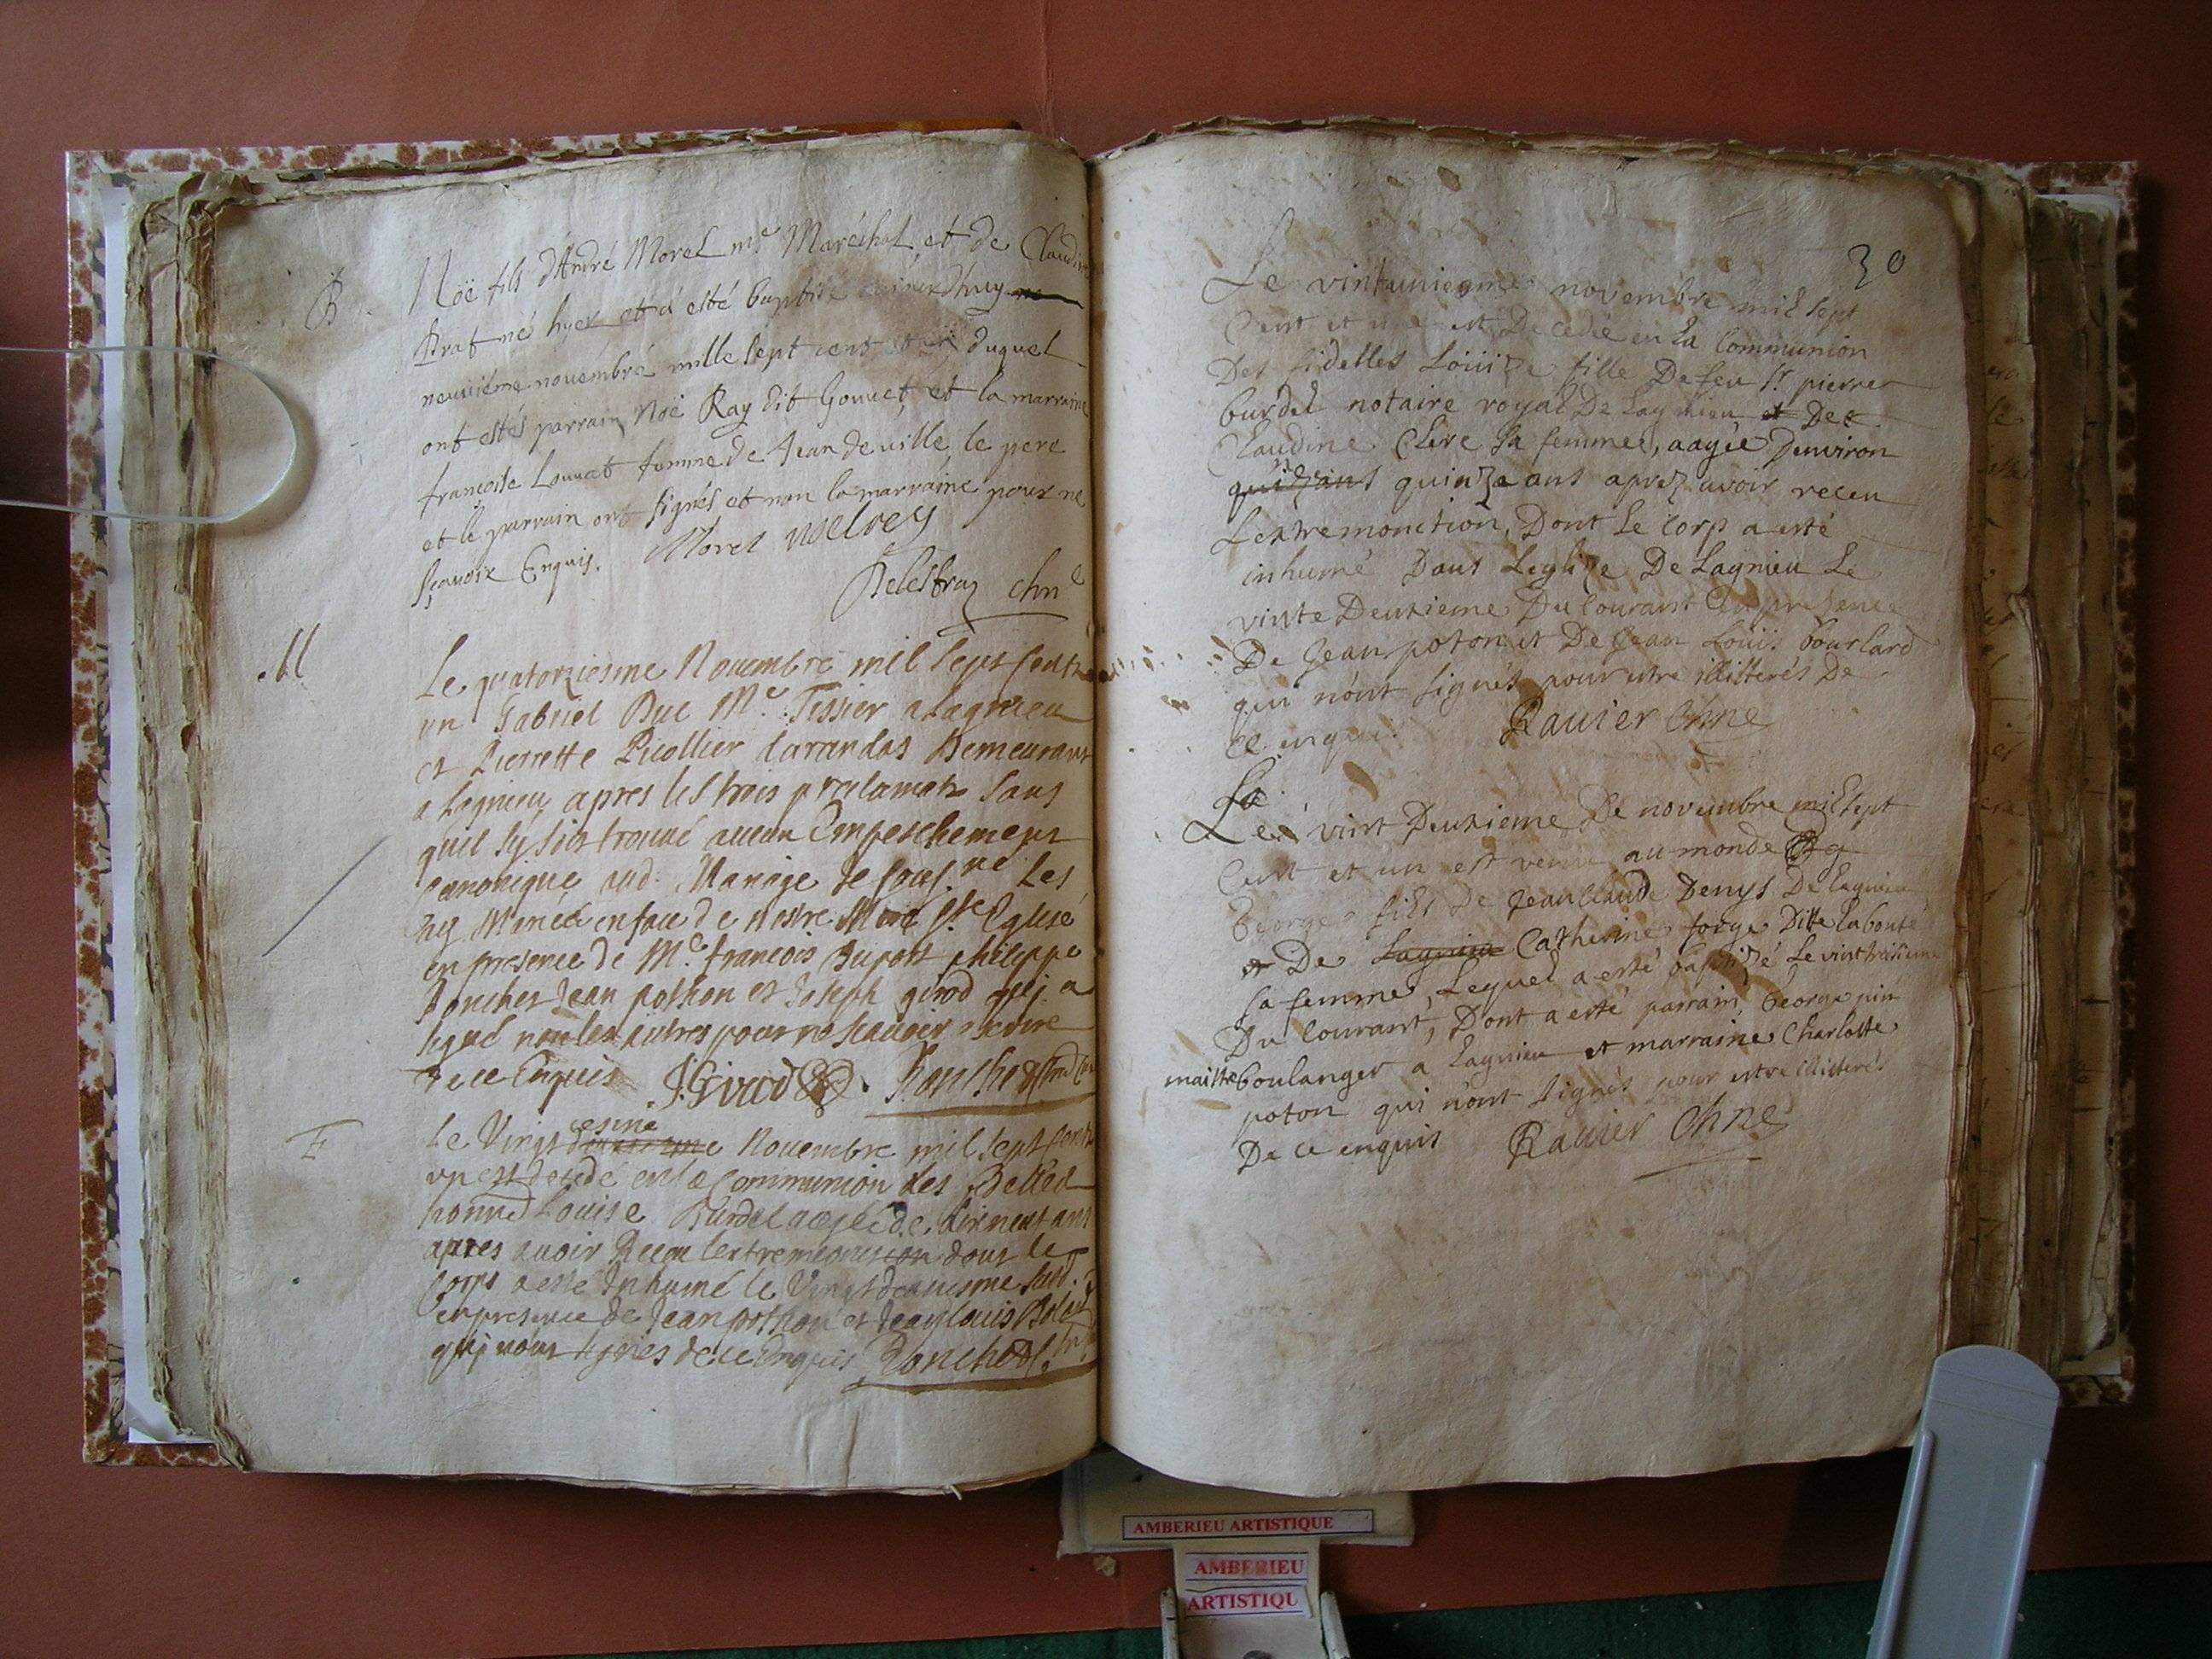 B
Noë fils d'André Morel me Maréchal et de Claudine
Braf né hyer et a esté baptisé aujourdhuy
neuviéme novembre mille sept cent et un duquel
ont estés parrain Noë Ray dit Gonnet, et la marraine
françoise Louvat femme de Jean deville le pere
et le parrain ont signés et non la marraine pour ne
sçavoir Enquis. Morel
Delestraz chne
M
Le quatorziesme Novembre mil sept cent
un Gabriel Buc Me Tissier a Lagnieu
et Pierrette Picollier darandas Demeurant
a Lagnieu, apres les trois proclamatz sans
quil sy soit trouvé aucun Empeschement
canonique aud. Mariage Je sous.né Les
ay Mariéz en face de nostre Mere Ste Eglise
en presence de Me françois Dupost philippe
Jean pothon et Joseph girod quj a
signé non les autres pour ne scavoir escrire
de ce Enquis J. Girod
F
esme
Le Vingt Novembre mil sept cent
un est decedé en la Communion des
Louise Burdel agée de dixneuf ans
apres avoir Receu lextremeonction dont le
corps a esté Inhumé le Vingtdeuxiesme sud.
en presence de Jean pothon et Jean louis
quj nont signés de ce Enquis
30
Le vintunieme novembre mil sept
Cent et une est Decedée en La Communion
Des fidelles Loüize fille De feu Sr pierre
burdel notaire royal De Lagnieu et De
Claudine Clere sa femme, aagée Denviron
quinze ans quinze ans aprez avoir receu
Lextremonction, Dont Le corp a esté
inhumé Dans Leglize De Lagnieu Le
vinte Deuxieme Du Courant En presence
De Jean poton et De Jean Loüis bourlard
qui nont signés pour estre illiterés De
ce enquis Ravier Chne
Le
Le vint Deuxieme De novembre mil sept
Cent et un est venu au monde
George fils De Jean Claude Denys De Lagnieu
et De Lagnieu Catherine forge Ditte Labonté
sa femme, Lequel a esté baptizé Le vinttroisieme
Du Courant, Dont a esté parrain George pin
maitre boulanger a Lagnieu et marraine Charlotte
poton qui nont signés pour estre illiterés
De ce enquis Ravier Chne
AMBERIEU ARTISTIQUE
AMBERIEU
ARTISTIQU